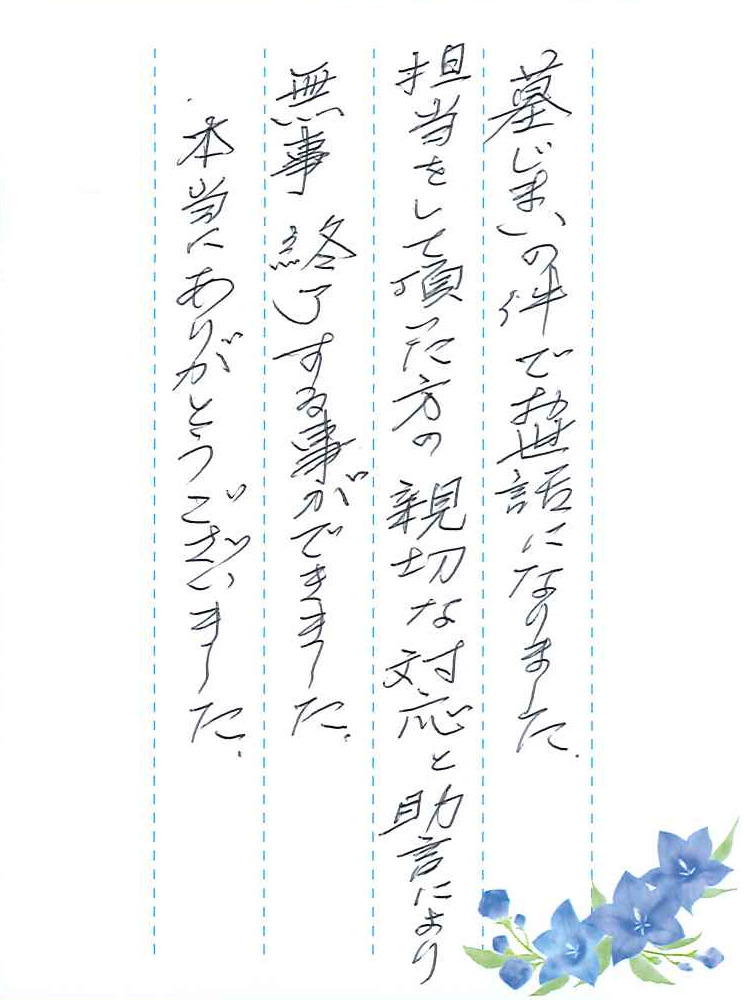 墓じまいの件でお世話になりました.
担当をして頂った方の親切な対応と助言により
無事 終了する事ができました.
本当にありがとうございました.